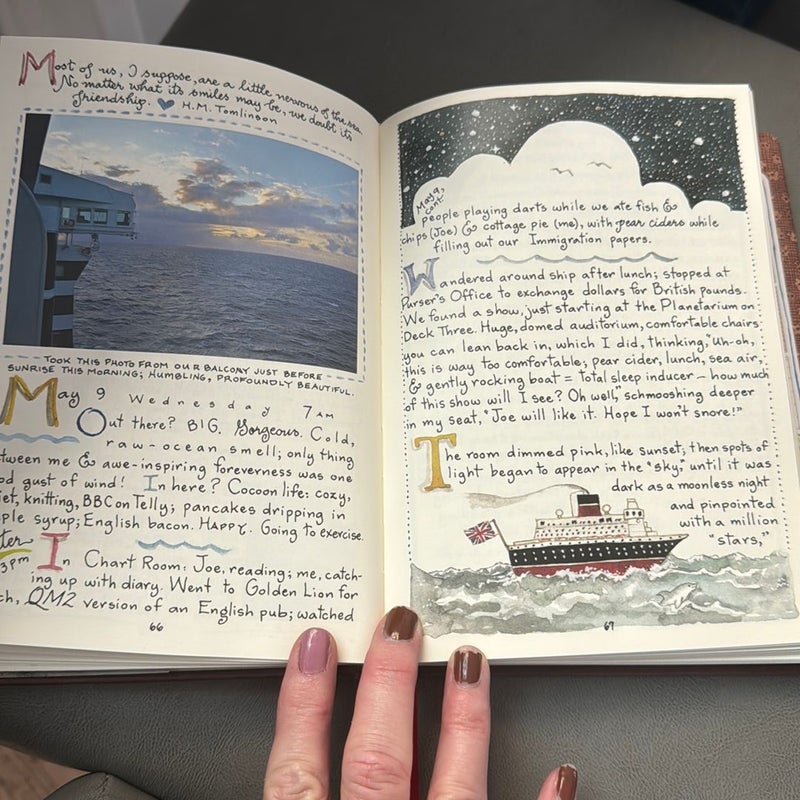 Most of us, I suppose, are a little nervous of the sea.
No matter what its smiles may be, we doubt its
friendship. H.M. Tomlinson
TOOK THIS PHOTO FROM OUR BALCONY JUST BEFORE
SUNRISE THIS MORNING; HUMBLING, PROFOUNDLY BEAUTIFUL.
May 9 Wednesday 7AM
Out there? BIG. Gorgeous. Cold,
raw-ocean smell; only thing
tween me & awe-inspiring foreverness was one
od gust of wind! In here? Cocoon life: cozy,
iet, knitting, BBC on Telly; pancakes dripping in
ple syrup; English bacon. HAPPY. Going to exercise.
ter
3pm In Chart Room: Joe, reading; me, catch-
ing up with diary. Went to Golden Lion for
ch, QM2 version of an English pub; watched
66
May 9,
cont.
people playing darts while we ate fish &
chips (Joe) & cottage pie (me), with pear ciders while
filling out our Immigration papers.
Wandered around ship after lunch; stopped at
Purser's Office to exchange dollars for British pounds.
We found a show, just starting at the Planetarium on
Deck Three. Huge, domed auditorium, comfortable chairs
you can lean back in, which I did, thinking, "Uh-oh,
this is way too comfortable; pear cider, lunch, sea air,
& gently rocking boat = total sleep inducer — how much
of this show will I see? Oh well," schmooshing deeper
in my seat, "Joe will like it. Hope I won't snore!"
The room dimmed pink, like sunset; then spots of
light began to appear in the "sky," until it was
dark as a moonless night
and pinpointed
with a million
"stars,"
67